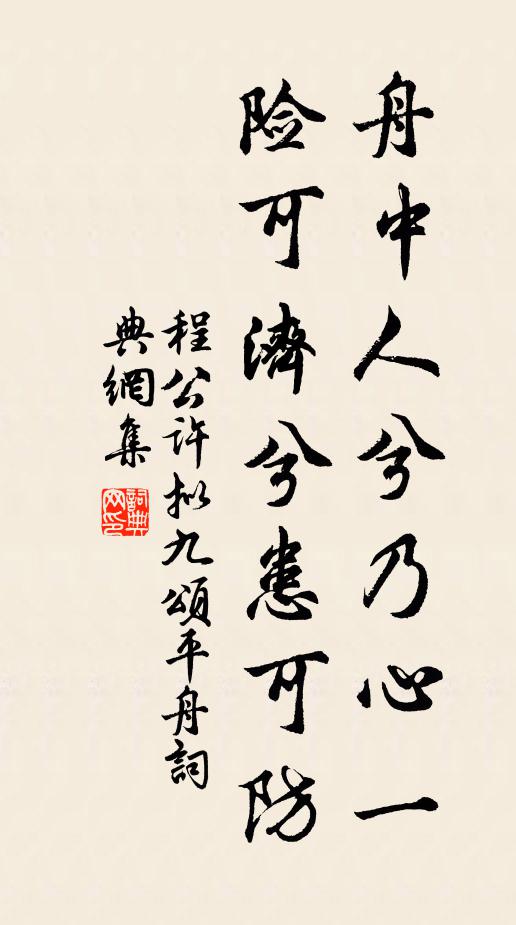 舟中人兮乃心一
险可濟兮患可防
程公许拟九頌平舟詞
典網集
詞典网印